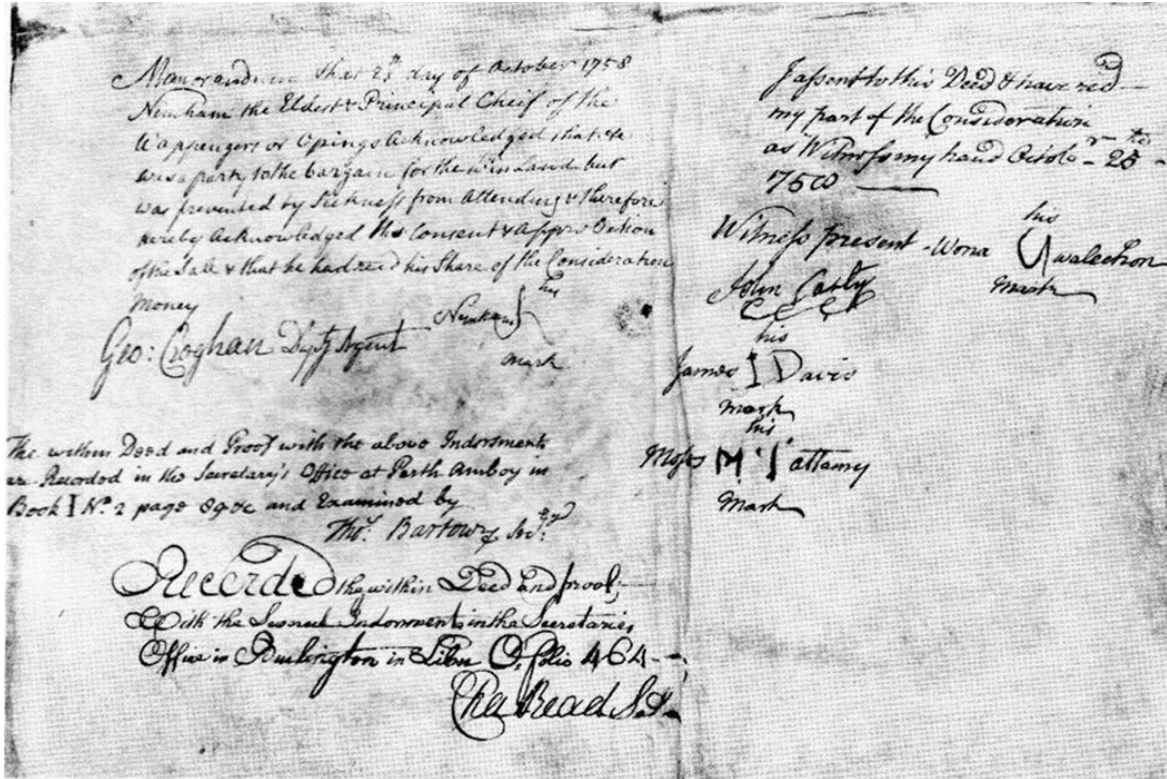 Memorandum that 25th day of October 1758
Numham the Eldest & Principal Cheif of the
Wappengers or Opings Acknowledged that he
was a party to the bargain for the within Lands but
was prevented by Sickness from Attending & therefore
hereby Acknowledged his Consent & Approbation
of the Sale & that he had recd his Share of the Consideration
Money
his
Numham
mark
Geo: Croghan Depty Agent
The within Deed and Proof with the above Indorsments
are Recorded in the Secretary's Office at Perth Amboy in
Book I No. 2 page 89 &c and Examined by
Thos. Bartow Secry
Recorded the within Deed and proof,
With the Indorsments in the Secretaries
Office in Burlington in Liber O, folio 464
Cha Read Secry
I assent to this Deed & have recd
my part of the Consideration
as Witness my hand Octobr 25th
1758
his
Witness present - Wona Walechon
mark
John
his
James I Davis
mark
his
Moses M Tattamy
Mark